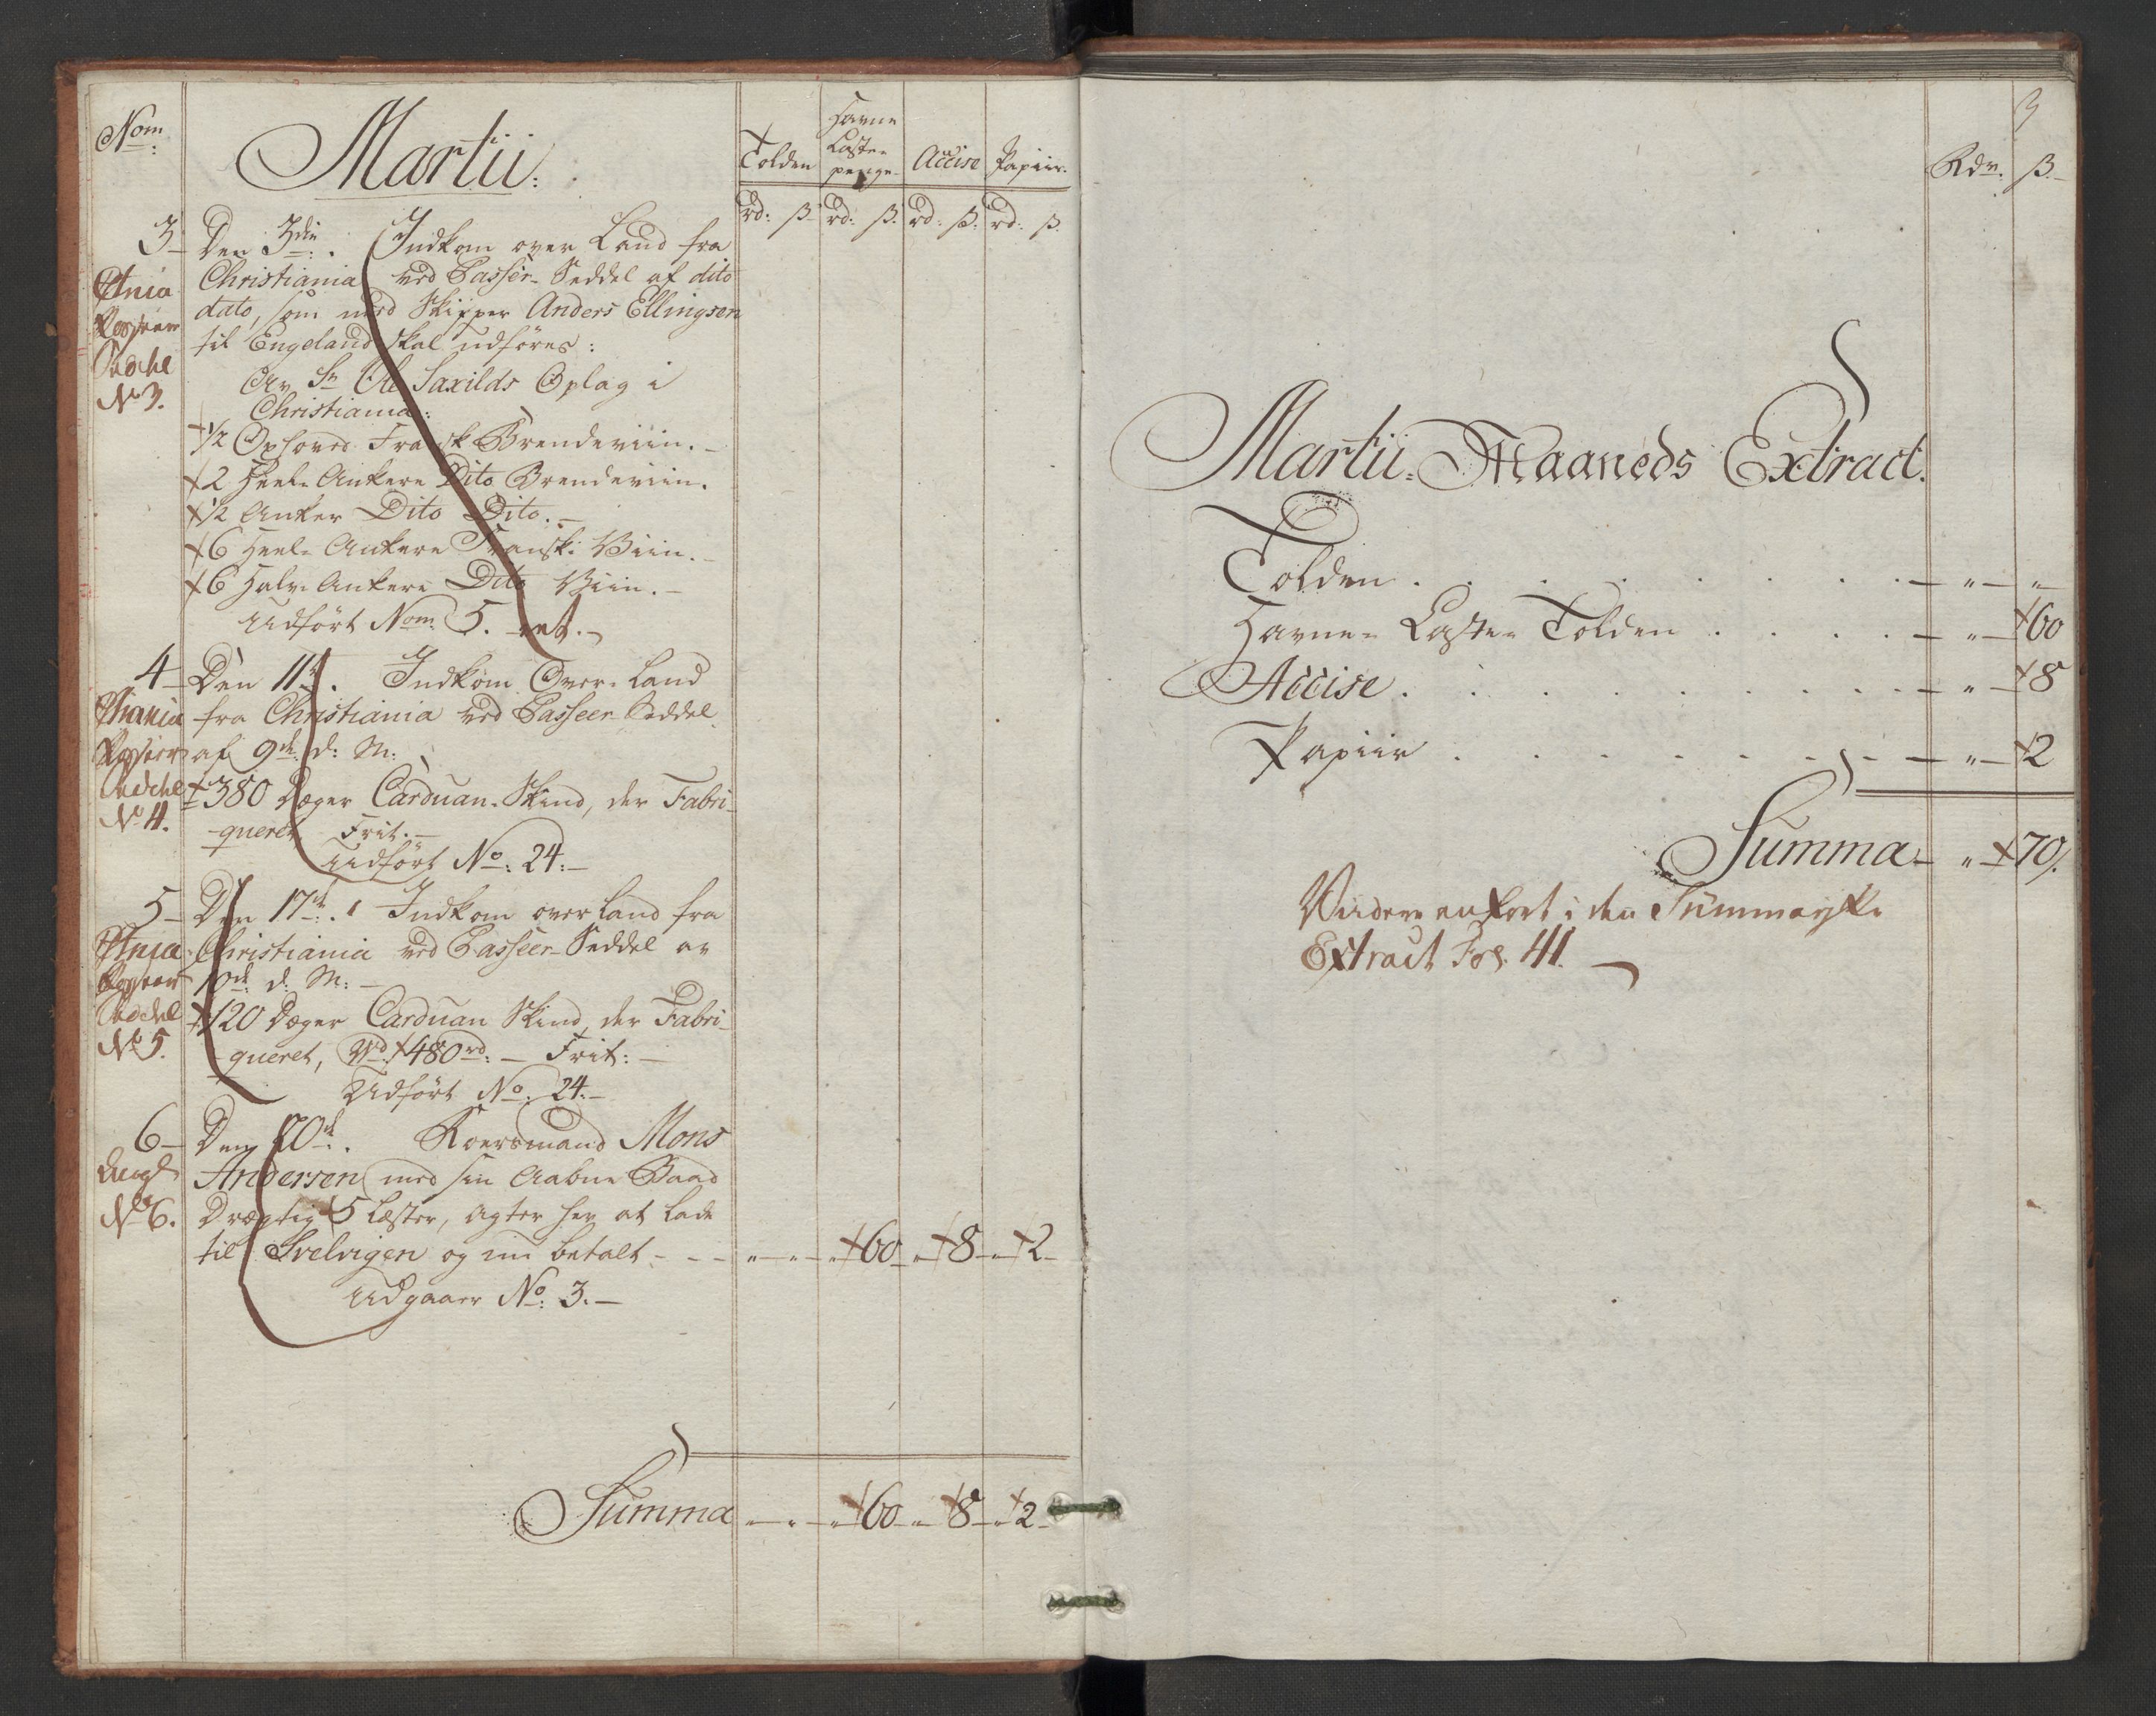 Nom:
Martii:
Tolden
Havne
Laste-
penge
Accise
Papiir.
rd: β rd: β. rd: β. rd: β.
3
Den 3die. Indkom over Land fra
Christiania ved Passer-Seddel af dito
dato, som med Skipper Anders Ellingsen
til Engeland skal udföres:
Xstnia
Seddel
No 3.
Av Sr Ole Saxilds Oplag i
Christiania:
1/2 Oxhoved Fransk Brendeviin.
2 Heele Ankere Dito Brendeviin.
1/2 Anker Dito Dito.
6 Heele Ankere Fransk: Viin.
6 Halve Ankere Dito Viin.
Udfört Nom. 5.
4
Den 11te. Indkom Over Land
fra Christiania ved Passeer-Seddel
af 9de d: M:
Seddel
No 4.
380 Deger Carduan-Skind, der Fabri-
queret Frit.
Udfört No: 24:
5
Den 17de. Indkom over Land fra
Christiania ved Passeer-Seddel av
10de d: M:
Xstnia
Seddel
No 5.
120 Deger Carduan Skind, der Fabri-
queret, Vrd. 480 rd: Frit:
Udfört No. 24.
6
Den 20de. Roersmand Mons
Andersen med sin Aabne Baad
Drægtig 5 Læster, agter her at lade
til Svelvigen og nu betalt - - - " - " - " 60 - " 8 - " 2
No 6.
Udgaaer No: 3.
Summa - " - " - " 60 - " 8 - " 2
3
Rdr. β.
Martii Maaneds Extract.
Tolden . . . . . . . . - " - "
Havne- Laste- Tolden . . . . - " - 60
Accise . . . . . . . . - " - 8
Papiir . . . . . . . - " - 2
Summa - " - 70.
Videre anfört i den Summariske
Extract Fol. 41.